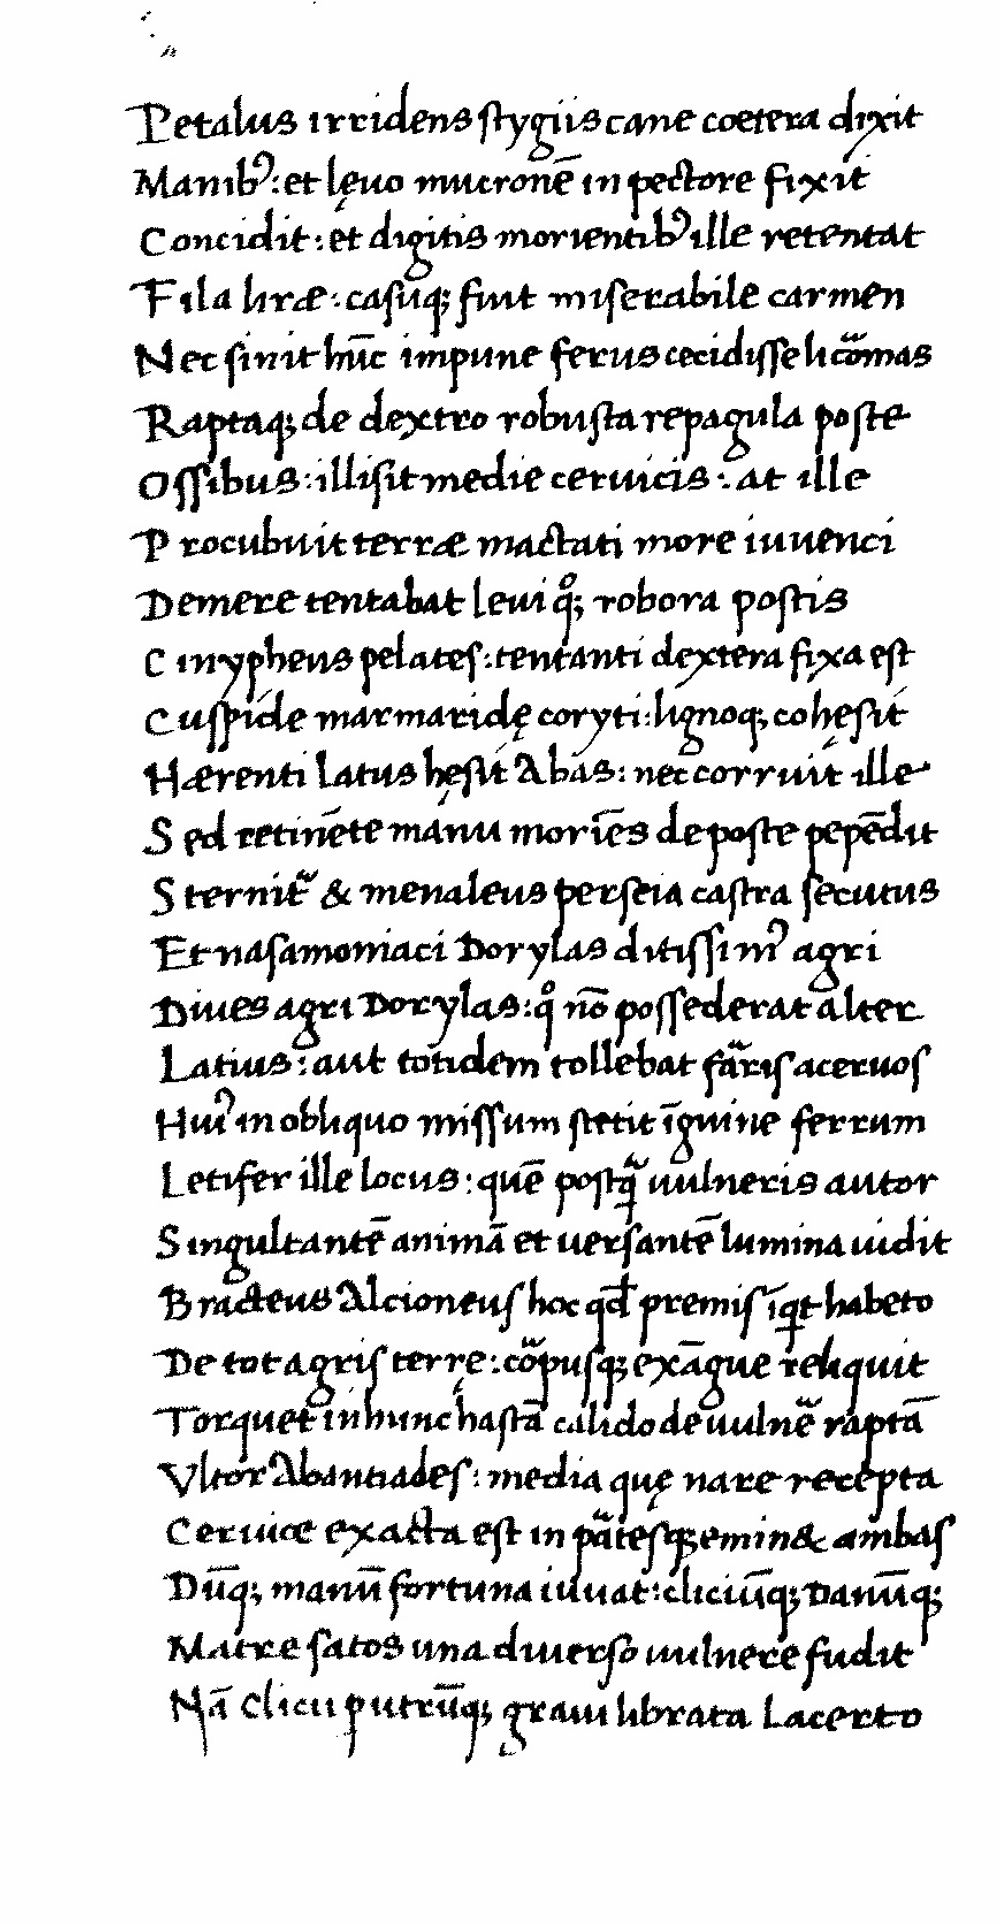 Petalus irridens stygiis cane coetera dixit
Manibꝰ: et lęuo mucronē in pectore fixit
Concidit: et digitis morientibꝰ ille retentat
Fila liræ: casuqꝫ fuit miserabile carmen
Nec sinit hūc impune ferus cecidisse licomas
Raptaqꝫ de dextro robusta repagula poste
Ossibus: illisit medie ceruicis: at ille
Procubuit terræ mactati more iuuenci
Demere tentabat leui qͦꝫ robora postis
Cinypheus pelates: tentanti dextera fixa est
Cuspide marmaridę coryti: lignoqꝫ cohęsit
Hærenti latus hęsit Abas: nec corruit ille
Sed retinēte manu moriēs de poste pepēdit
Sternitᷓ & menaleus perseia castra secutus
Et nasamoniaci Dorylas ditissimꝰ agri
Diues agri Dorylas: qͦ nō possederat alter
Latius: aut totidem tollebat faᷓris aceruos
Huiꝰ in obliquo missum stetit īguine ferrum
Letifer ille locus: quē postqᷓ uulneris autor
Singultantē animā et uersantē lumina uidit
Bracteus Alcioneus hoc qđ premis iqͥt habeto
De tot agris terrę: coᷓpusqꝫ exāgue reliquit
Torquet in hunc hastā calido de uulneᷓ raptā
Vltor Abantiades: media quę nare recepta
Ceruice exacta est in paᷓtesqꝫ emin& ambas
Dūqꝫ manū fortuna iuuat: cliciūqꝫ Danūqꝫ
Matre satos una diuerso uulnere fudit
Nā Clicii putrūqꝫ graui librata Lacerto